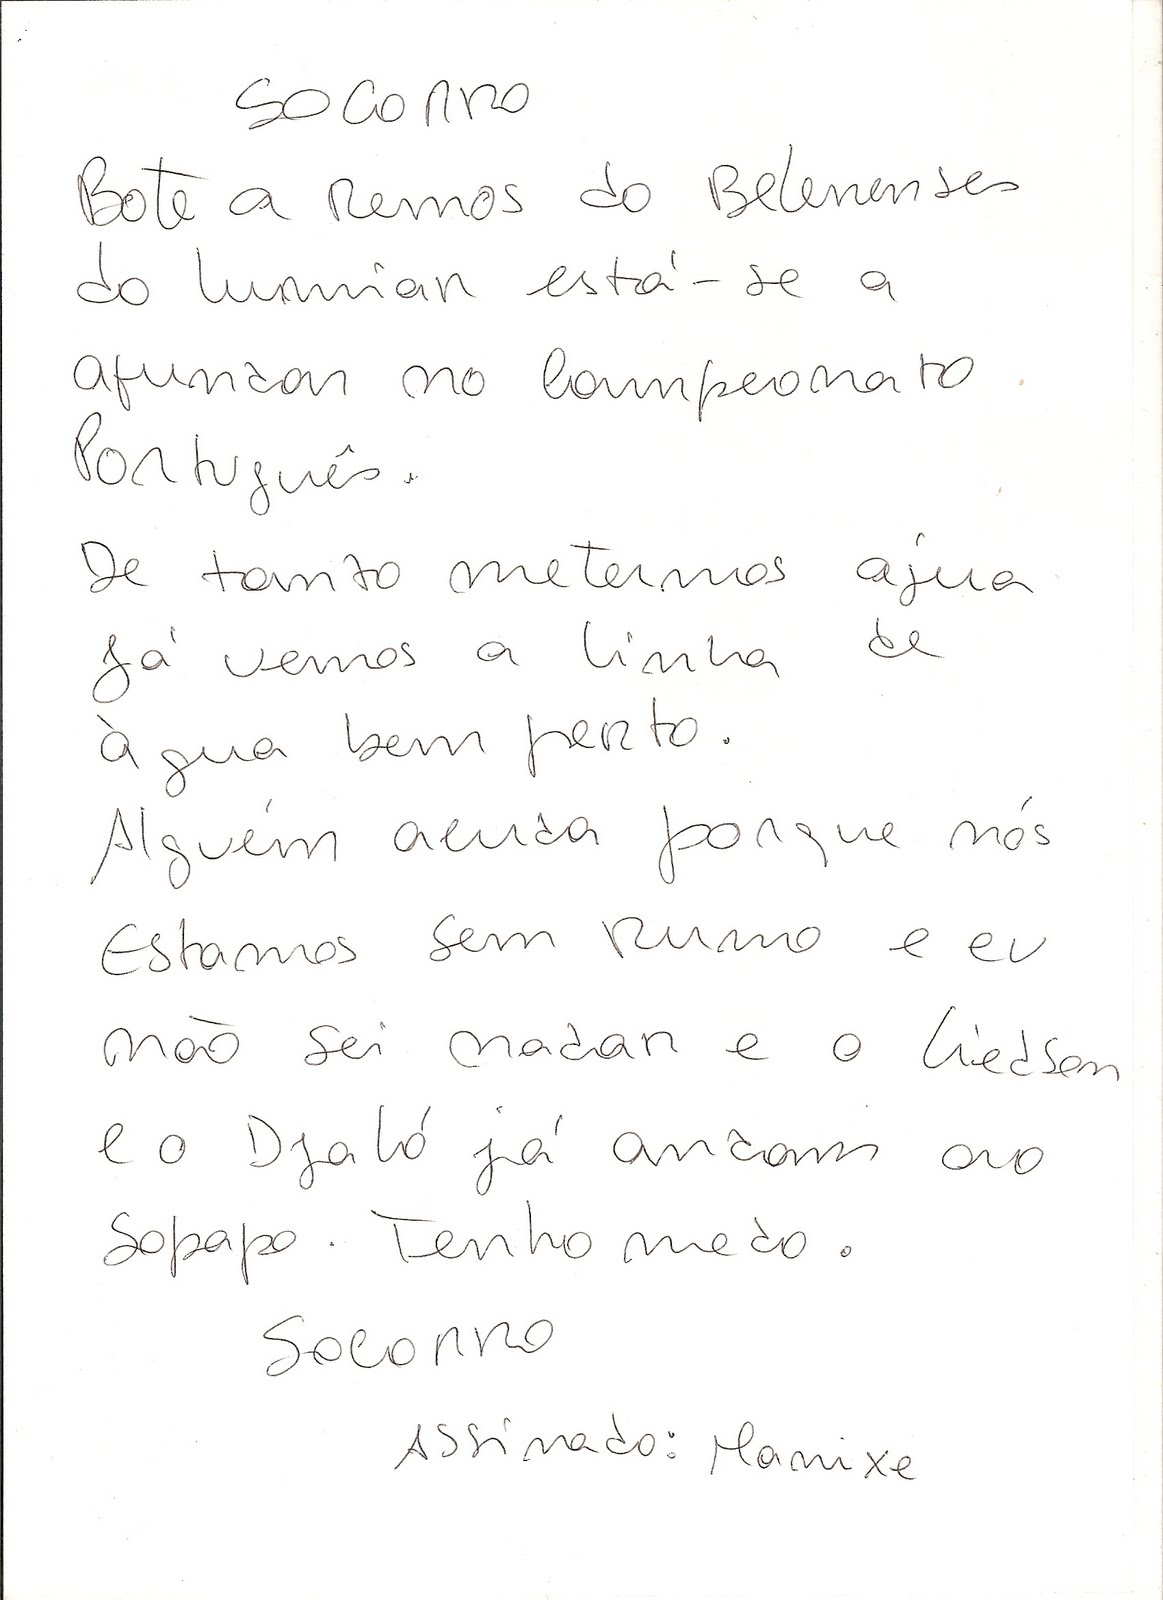 Socorro
Bote a Remos do Belenenses
do lumiar está-se a
afundar no Campeonato
Português.
De tanto metermos água
Já vemos a linha de
àgua bem perto.
Alguém acuda porque nós
Estamos sem Rumo e eu
não sei nadar e o Liedson
e o Djaló já andam ao
Sopapo. Tenho medo.
Socorro
Assinado: Manixe